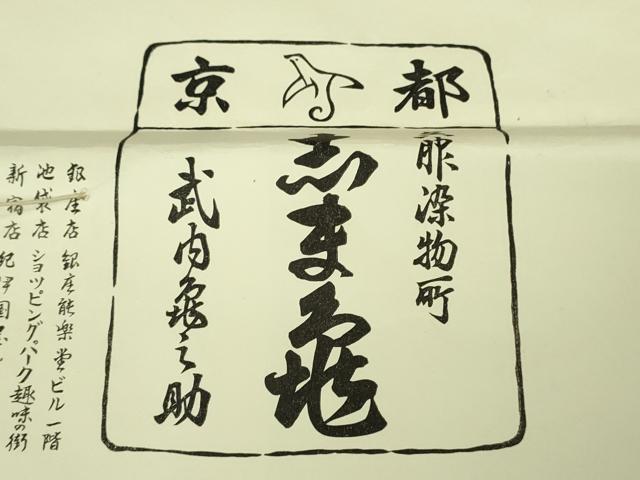 京都
服染物所
志ま亀
武内亀之助
銀座店 銀座能樂堂ビル一階
池袋店 ショッピングパーク趣味の街
新宿店 紀伊國屋